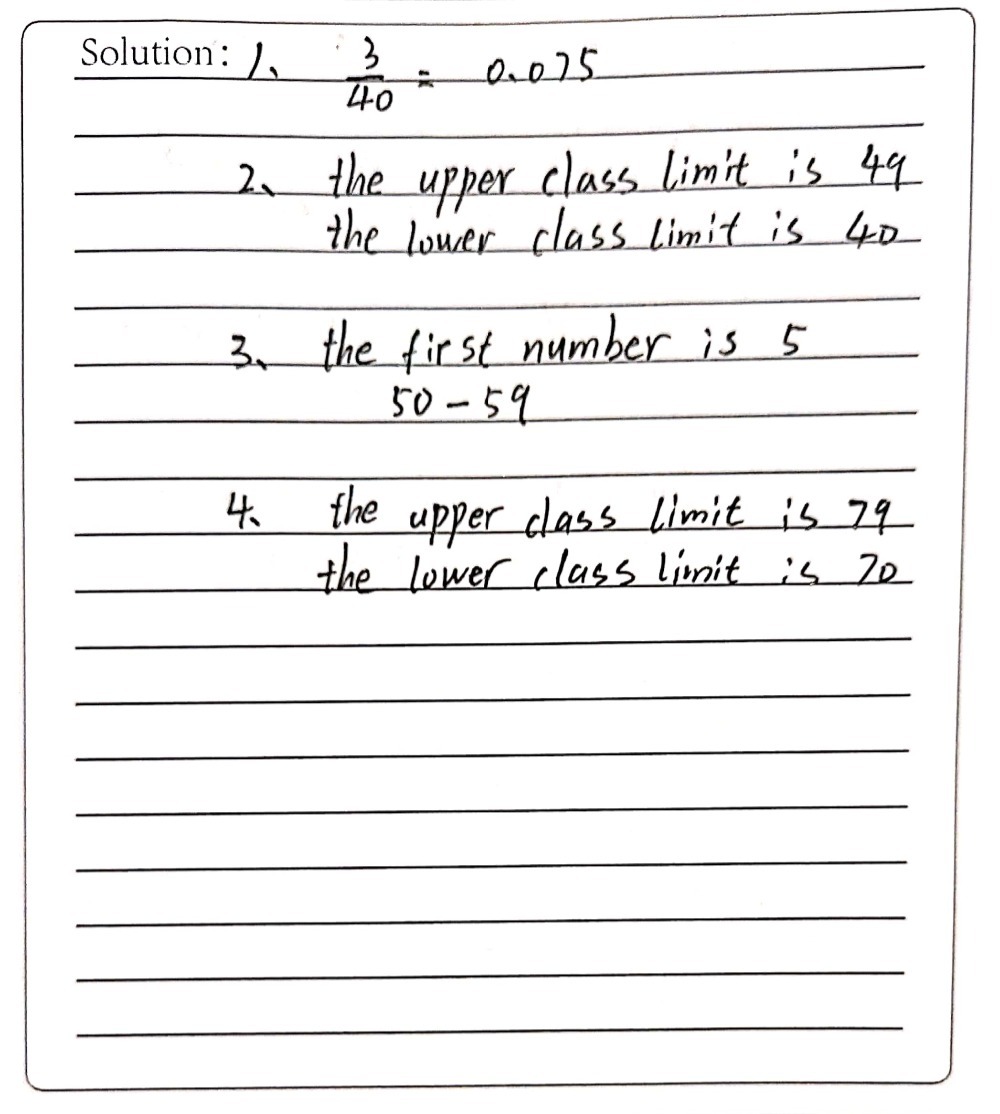 Solution: 1、 3/40 = 0.075
2、 the upper class limit is 49
the lower class limit is 40
3、 the first number is 5
50 - 59
4、 the upper class limit is 79
the lower class limit is 70